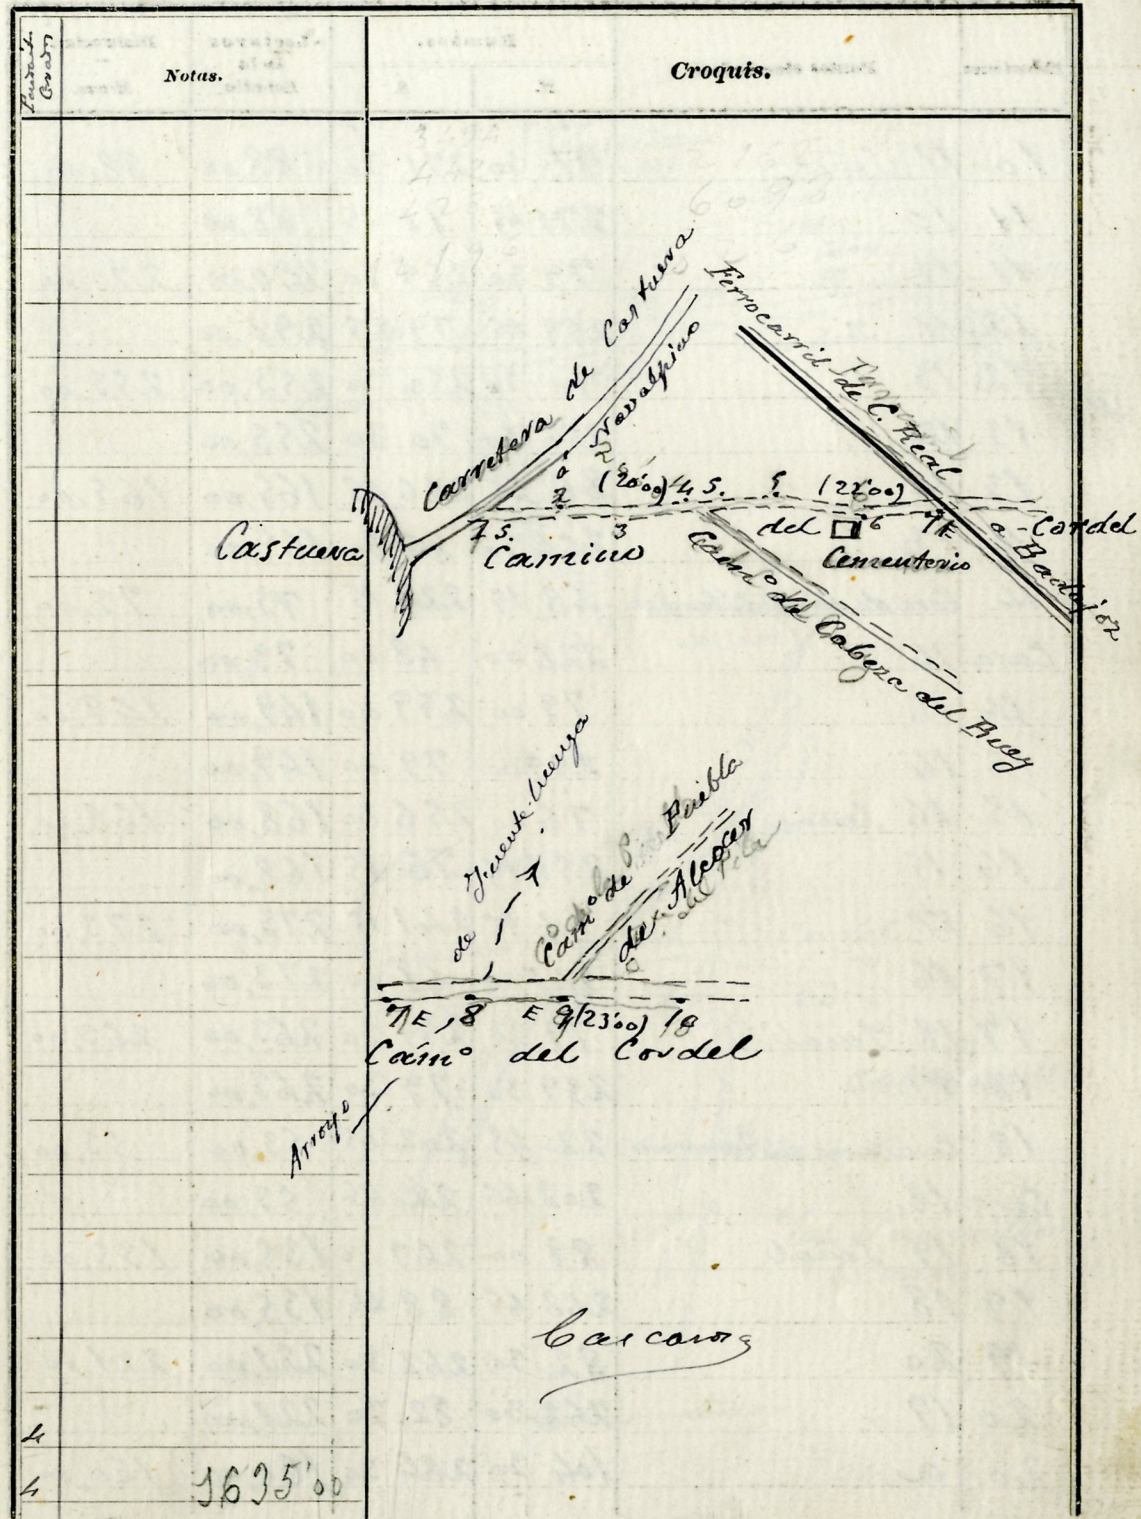 Notas.
Croquis.
Carretera de Castuera
a Navalpino
Ferrocarril de C. Real
a Badajoz
2
(20'00) 4 S. 5 (22'00)
1 S. 3 del 6 7 E Cordel
Castuera
Camino Cementerio
Camº de Cabeza del Buey
de Fuente-luenga
Camº de Puebla
de Alcocer
7 E 8 E 9 (23'00) 10
Camº del Cordel
Arroyo
4
4 1635'00